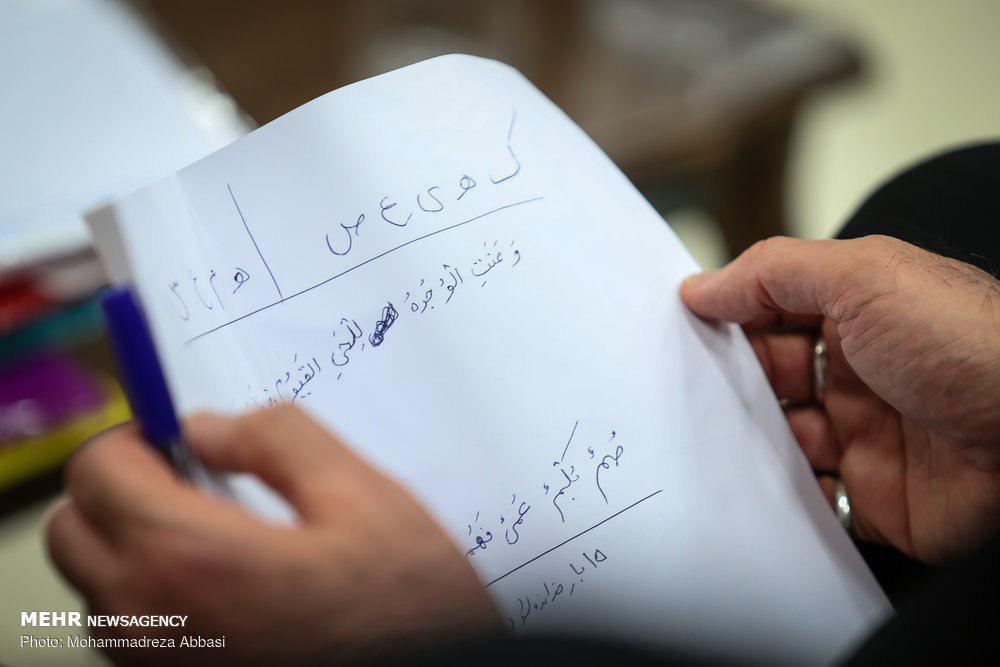 ک ه ی ع ص
وَ عَنَتِ الْوُجُوهُ لِلْحَيِّ القَيُّومِ
صُمٌ بُكْمٌ عُمْىٌ فَهُم
۱۵ بار خوانده شود
MEHR NEWSAGENCY
Photo: Mohammadreza Abbasi